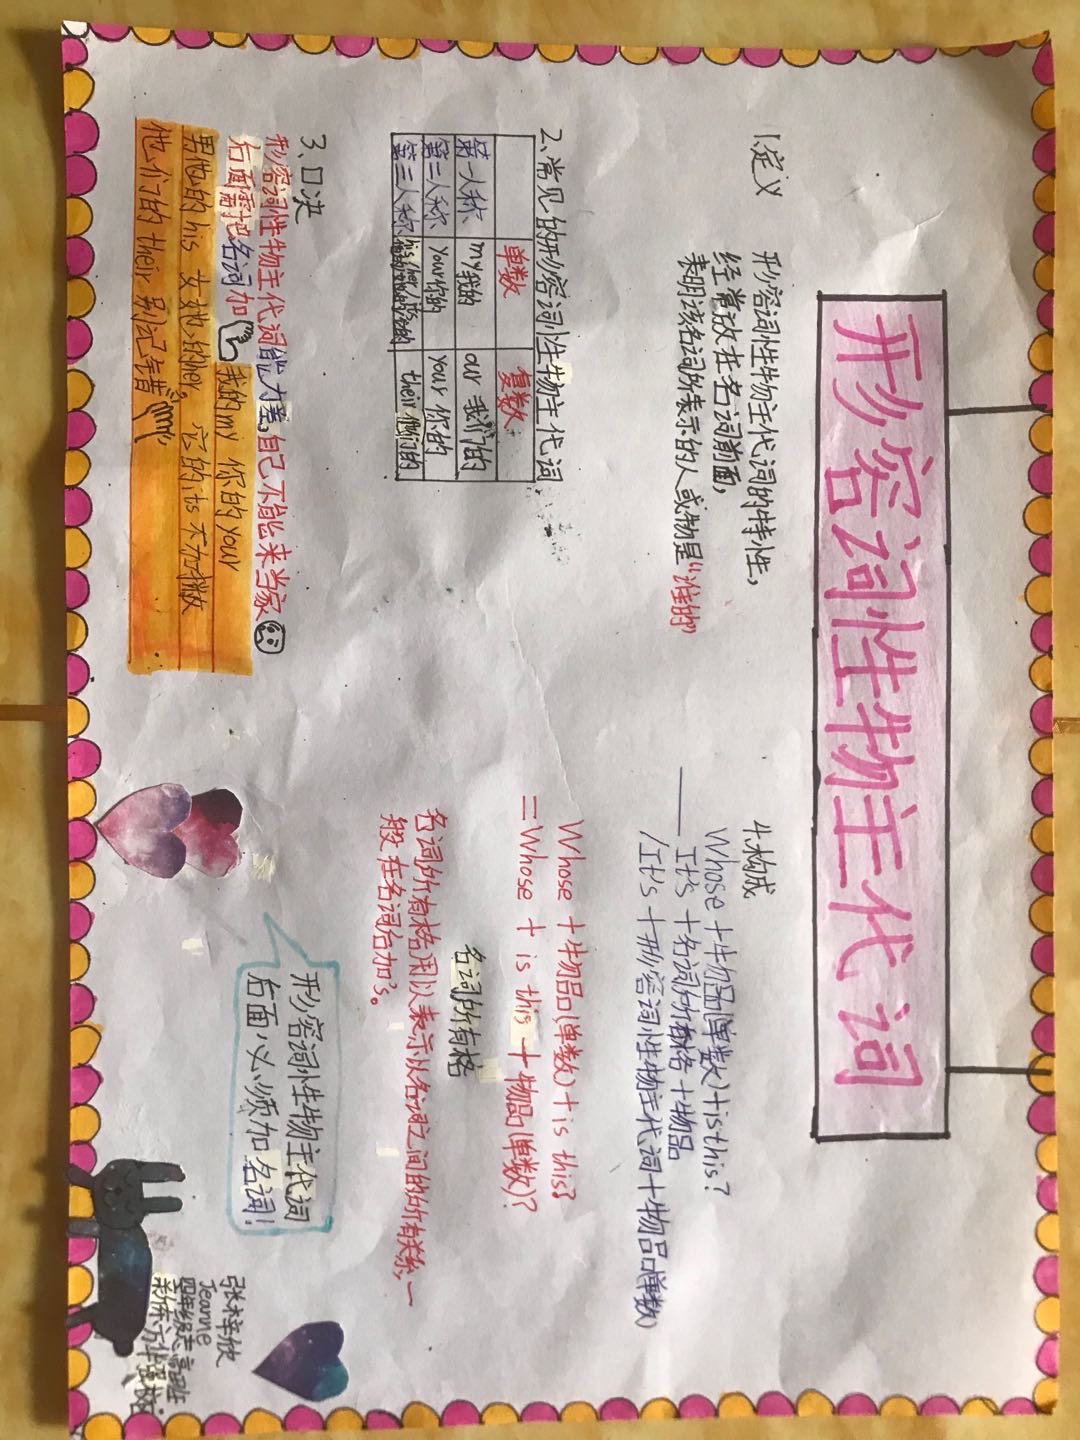 形容词性物主代词
1.定义
形容词性物主代词的特性，
经常放在名词前面，
表明该名词所表示的人或物是“谁的”
2、常见的形容词性物主代词
单数 复数
第一人称 my我的 our 我们的
第二人称 your你的 your 你的
第三人称 their 他们的
3、口决
形容词性物主代词能力差，自己不能来当家
右面需把名词加 我的my 你的your
男他的his 女她的her, 它的its 不加撇
他们的 their 别记牢着
4.构成
Whose+物品(单数)+is this?
—— It's +名词所有格+物品
/It's +形容词性物主代词+物品(单数)
Whose +物品(单数)+is this?
=Whose + is this +物品(单数)?
名词所有格
名词所有格用以表示以名词之间的所有关系,一
般在名词后加's。
形容词性物主代词
右面必须加名词!
张梓欣
Jeanne
四年级志高班